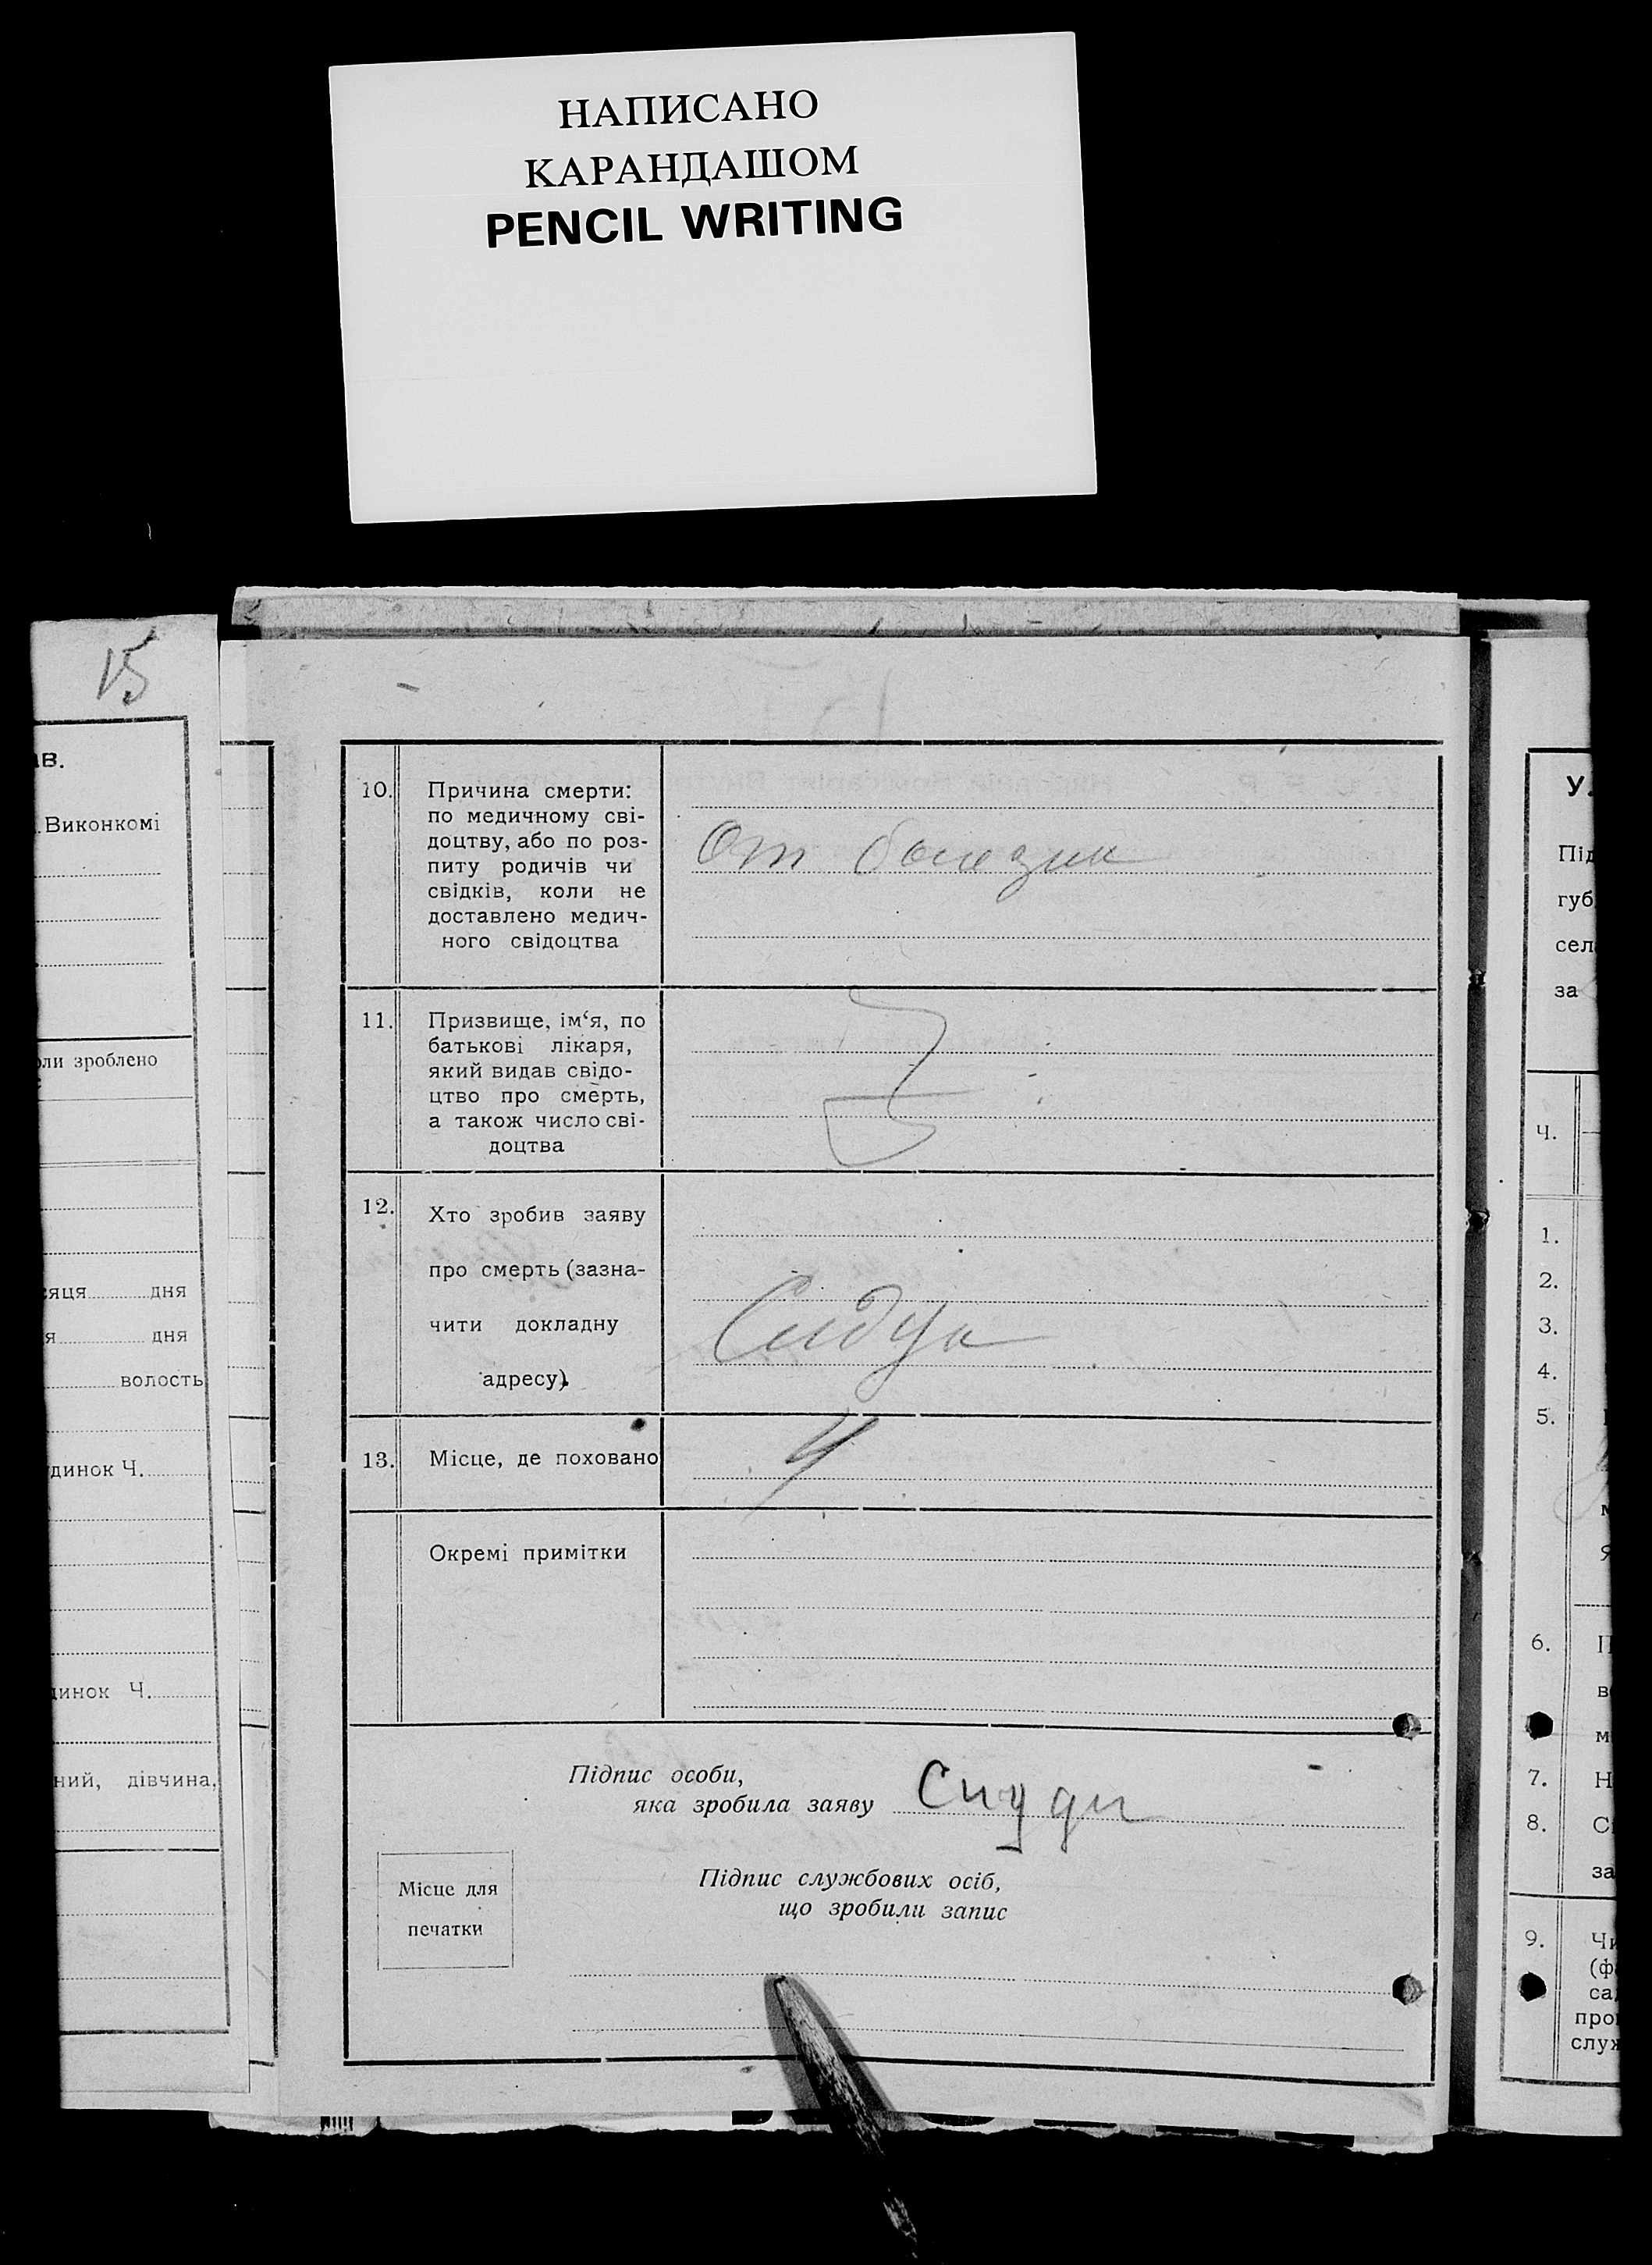 НАПИСАНО
КАРАНДАШОМ
PENCIL WRITING
15
ів.
.Виконкомі
оли зроблено
сяця дня
я дня
волость
динок Ч.
динок Ч.
ний, дівчина,
10. Причина смерти:
по медичному сві-
доцтву, або по роз-
питу родичів чи
свідків, коли не
доставлено медич-
ного свідоцтва
От болезни
11. Призвище, ім‘я, по
батькові лікаря,
який видав свідо-
цтво про смерть,
а також число сві-
доцтва
12. Хто зробив заяву
про смерть (зазна-
чити докладну
адресу).
13. Місце, де поховано
Окремі примітки
Підпис особи,
яка зробила заяву
Підпис службових осіб,
що зробили запис
Місце для
печатки
У.
Під
губ
сел
за
Ч.
1.
2.
3.
4.
5.
6. П
в
м
7. Н
8. С
за
9. Чи
(ф
са
про
служ